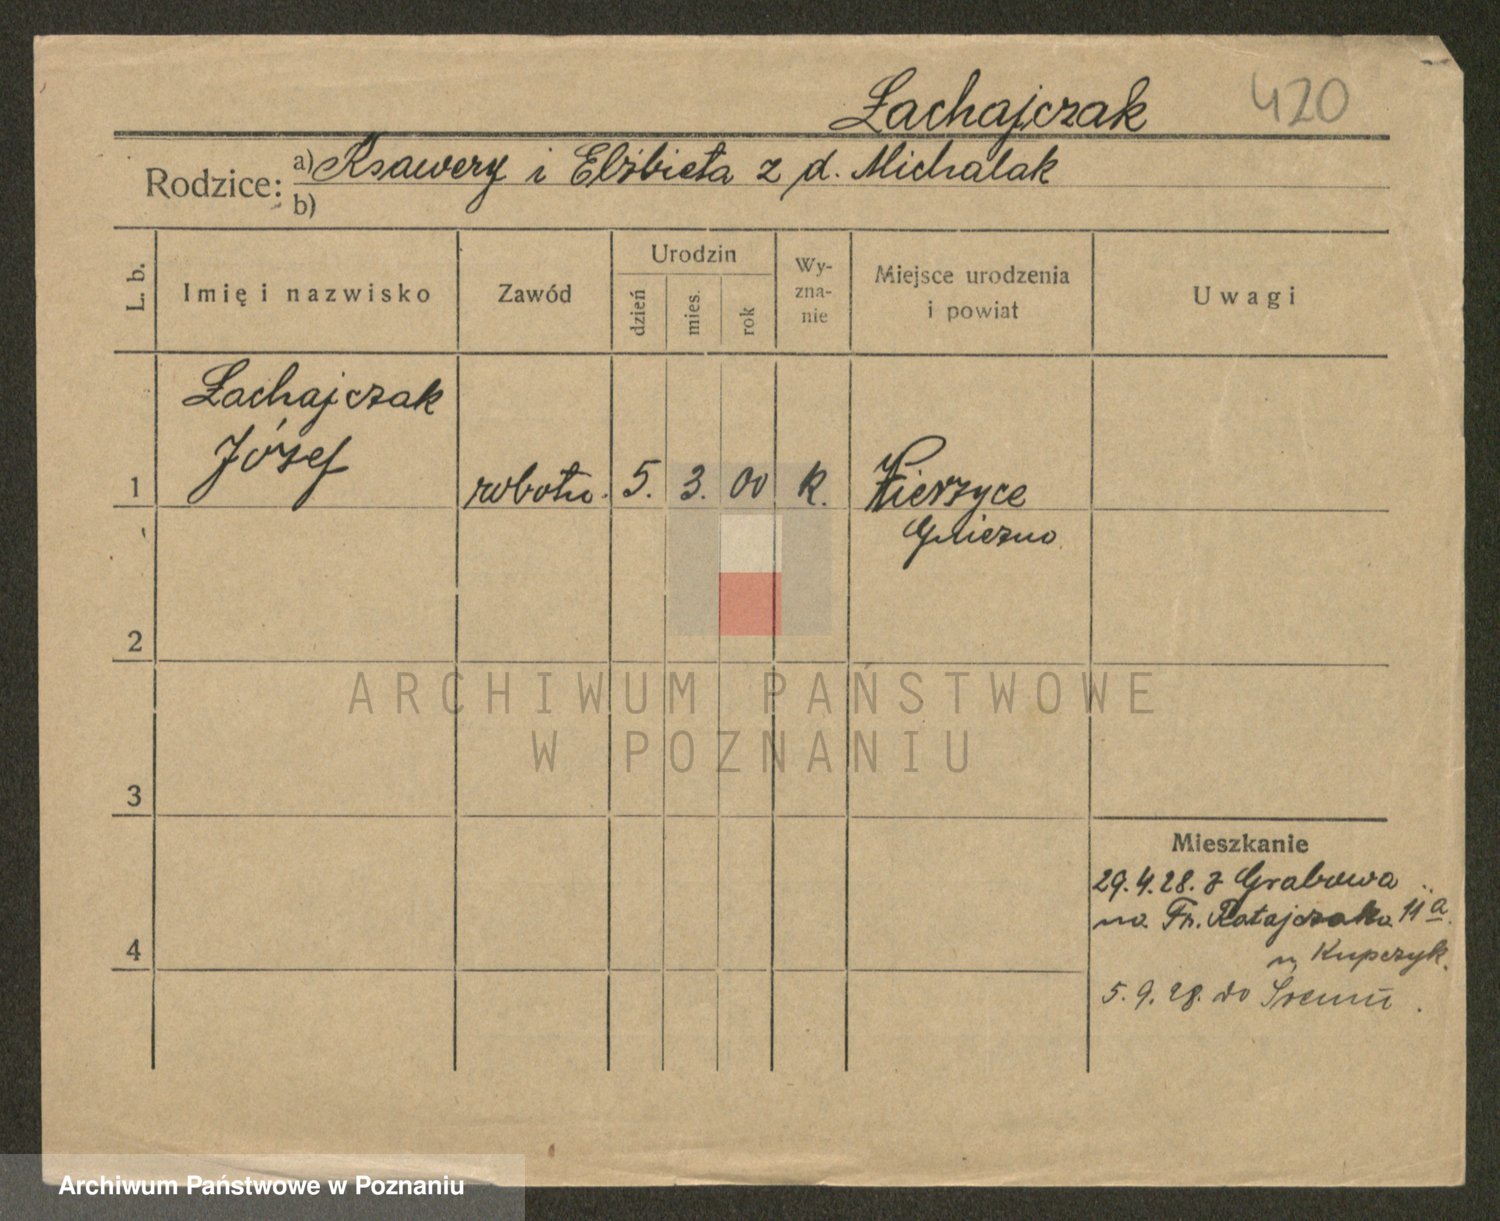 Łachajczak
420
Rodzice: a) Ksawery i Elżbieta z d. Michalak
b)
L. b.
Imię i nazwisko
Zawód
Urodzin
dzień
mies.
rok
Wy-
zna-
nie
Miejsce urodzenia
i powiat
Uwagi
Łachajczak
Józef
1
robotn.
5.
3.
00
k.
Wierzyce
Gniezno
2
ARCHIWUM PAŃSTWOWE
W POZNANIU
3
Mieszkanie
29.4.28. z Grabowa
na Fr. Ratajczaka 11a
u Kupczyk.
4
5.9.28. do Śremu.
Archiwum Państwowe w Poznaniu